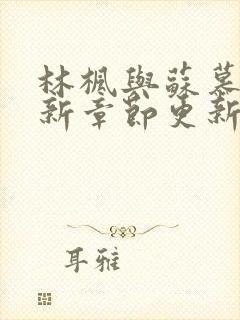 林楓與蘇慕
新章節更新
耳雅